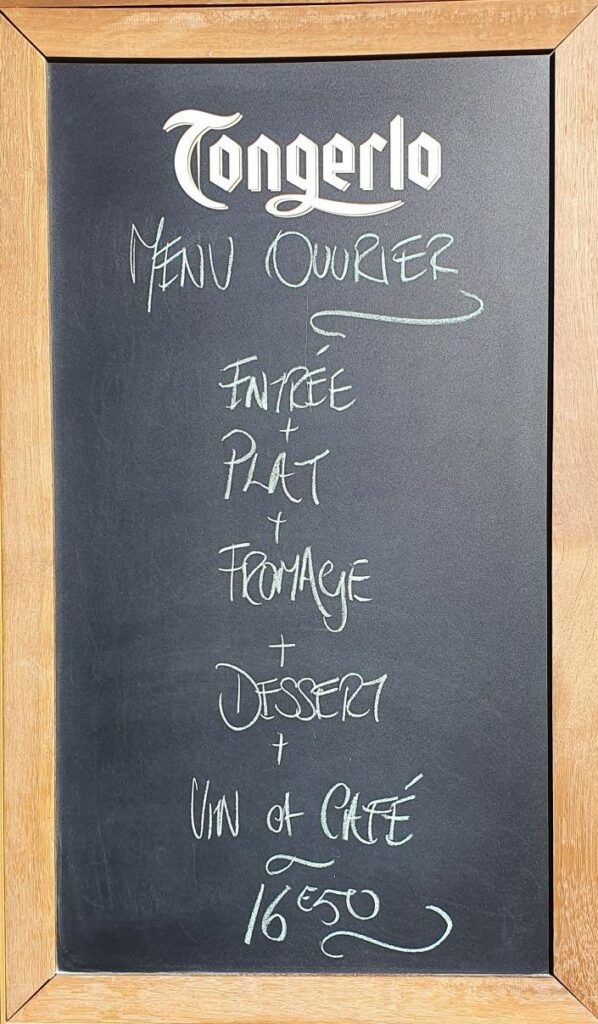 Tongerlo
MENU OUVRIER
ENTRÉE
+
PLAT
+
FROMAGE
+
DESSERT
+
VIN et CAFÉ
16€50